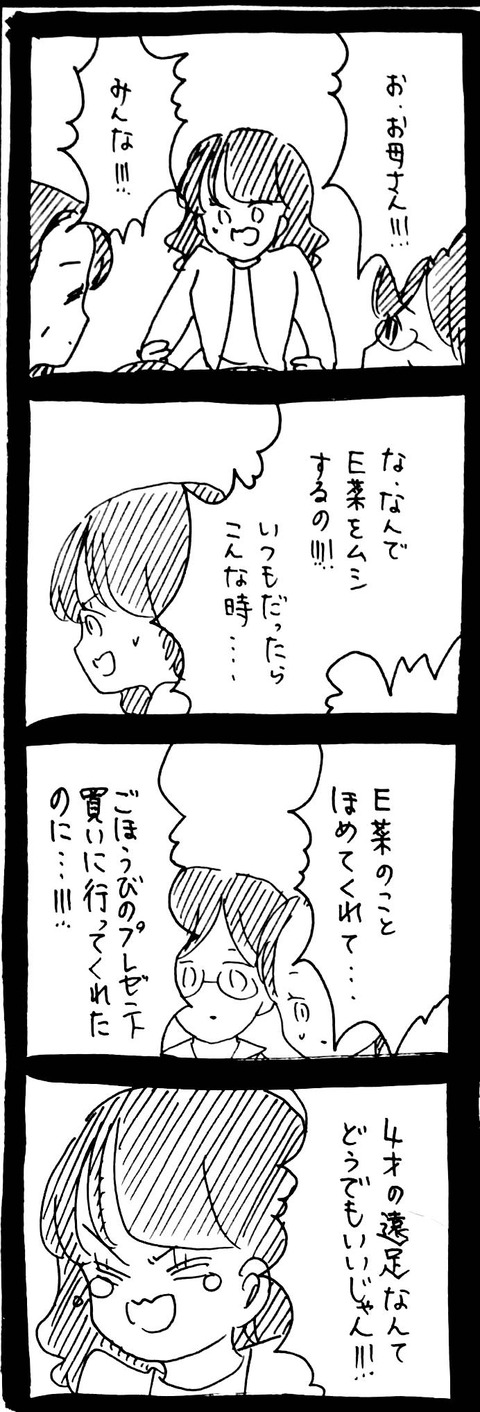 お、お母さん!!!
みんな!!!
な、なんで
E薬をムシ
するの!!!!
いつもだったら
こんな時‥‥
E薬のこと
ほめてくれて‥‥
ごほうびのプレゼント
買いに行ってくれた
のに‥‥!!!
4才の遠足なんて
どうでもいいじゃん!!!